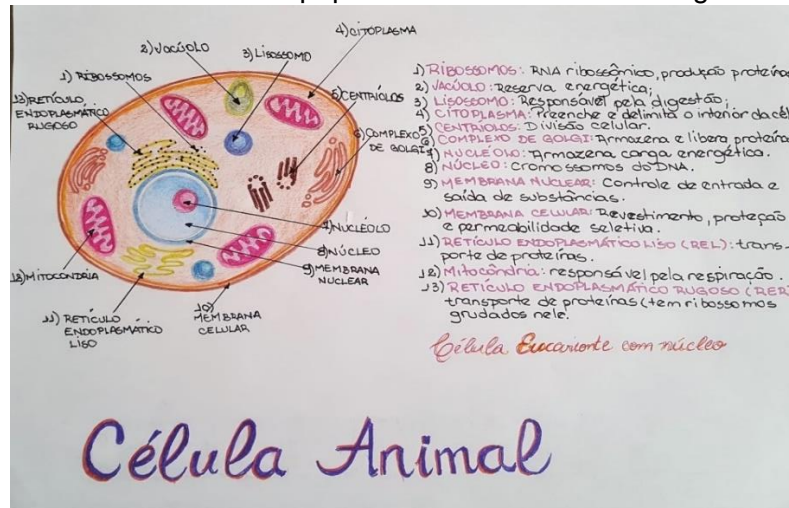 4) CITOPLASMA
2) VACÚOLO
3) LISOSSOMO
1) RIBOSSOMOS
13) RETÍCULO
ENDOPLASMÁTICO
RUGOSO
5) CENTRÍOLOS
6) COMPLEXO
DE GOLGI
7) NUCLÉOLO
8) NÚCLEO
9) MEMBRANA
NUCLEAR
12) MITOCÔNDRIA
11) RETÍCULO
ENDOPLASMÁTICO
LISO
10)
MEMBRANA
CELULAR
1) RIBOSSOMOS: RNA ribossômico, produção proteínas
2) VACÚOLO: Reserva energética;
3) LISOSSOMO: Responsável pela digestão;
4) CITOPLASMA: Preenche e delimita o interior da cél
5) CENTRIOLOS: Divisão celular.
6) COMPLEXO DE GOLGI: Armazena e libera proteína
7) NUCLÉOLO: Armazena carga energética.
8) NÚCLEO: cromossomos do DNA.
9) MEMBRANA NUCLEAR: Controle de entrada e
saída de substâncias.
10) MEMBRANA CELULAR: Revestimento, proteção
e permeabilidade seletiva.
11) RETÍCULO ENDOPLASMÁTICO LISO (REL): trans-
porte de proteínas.
12) Mitocôndria: responsável pela respiração.
13) RETÍCULO ENDOPLASMÁTICO RUGOSO (RER)
transporte de proteínas (tem ribossomos
grudados nele.
Célula Eucarionte com núcleo
Célula Animal